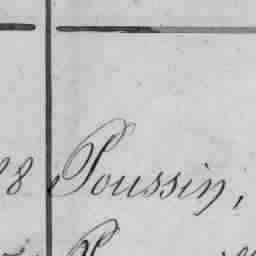 8 Poussin,